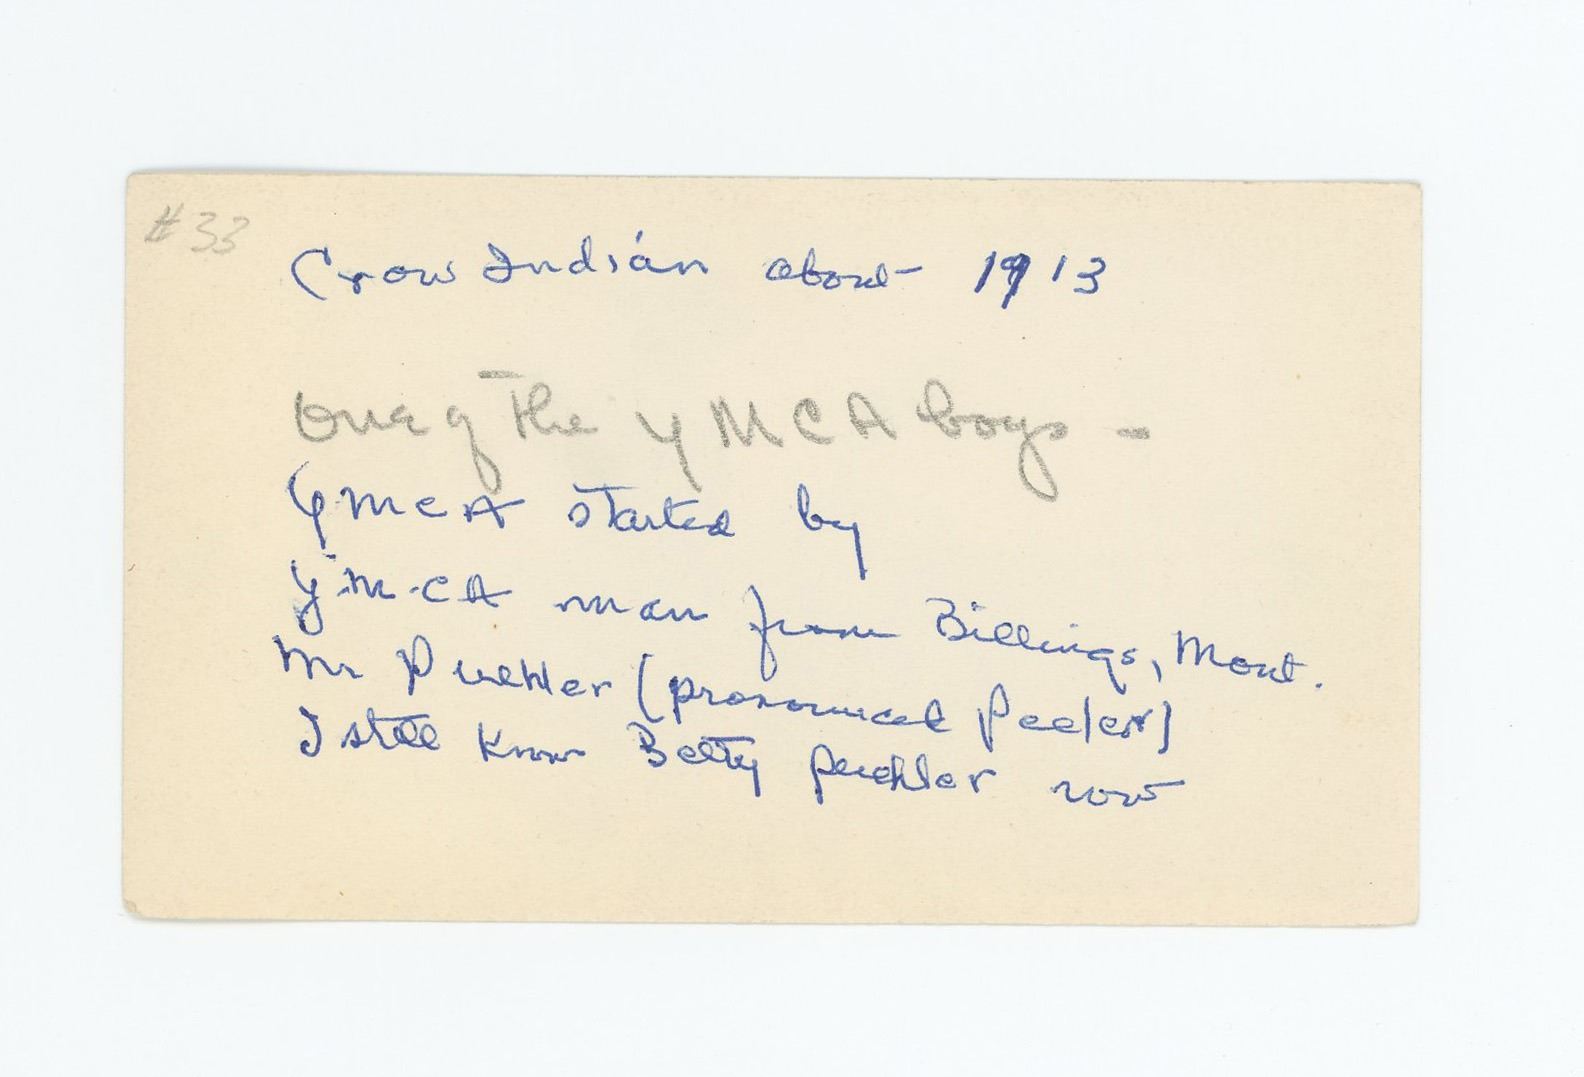 #33
Crow Indian about 1913
One of the YMCA boys -
YMCA started by
Y.M.CA man from Billings, Mont.
Mr Puehler (pronounced Peeler)
I still know Betty Puehler now